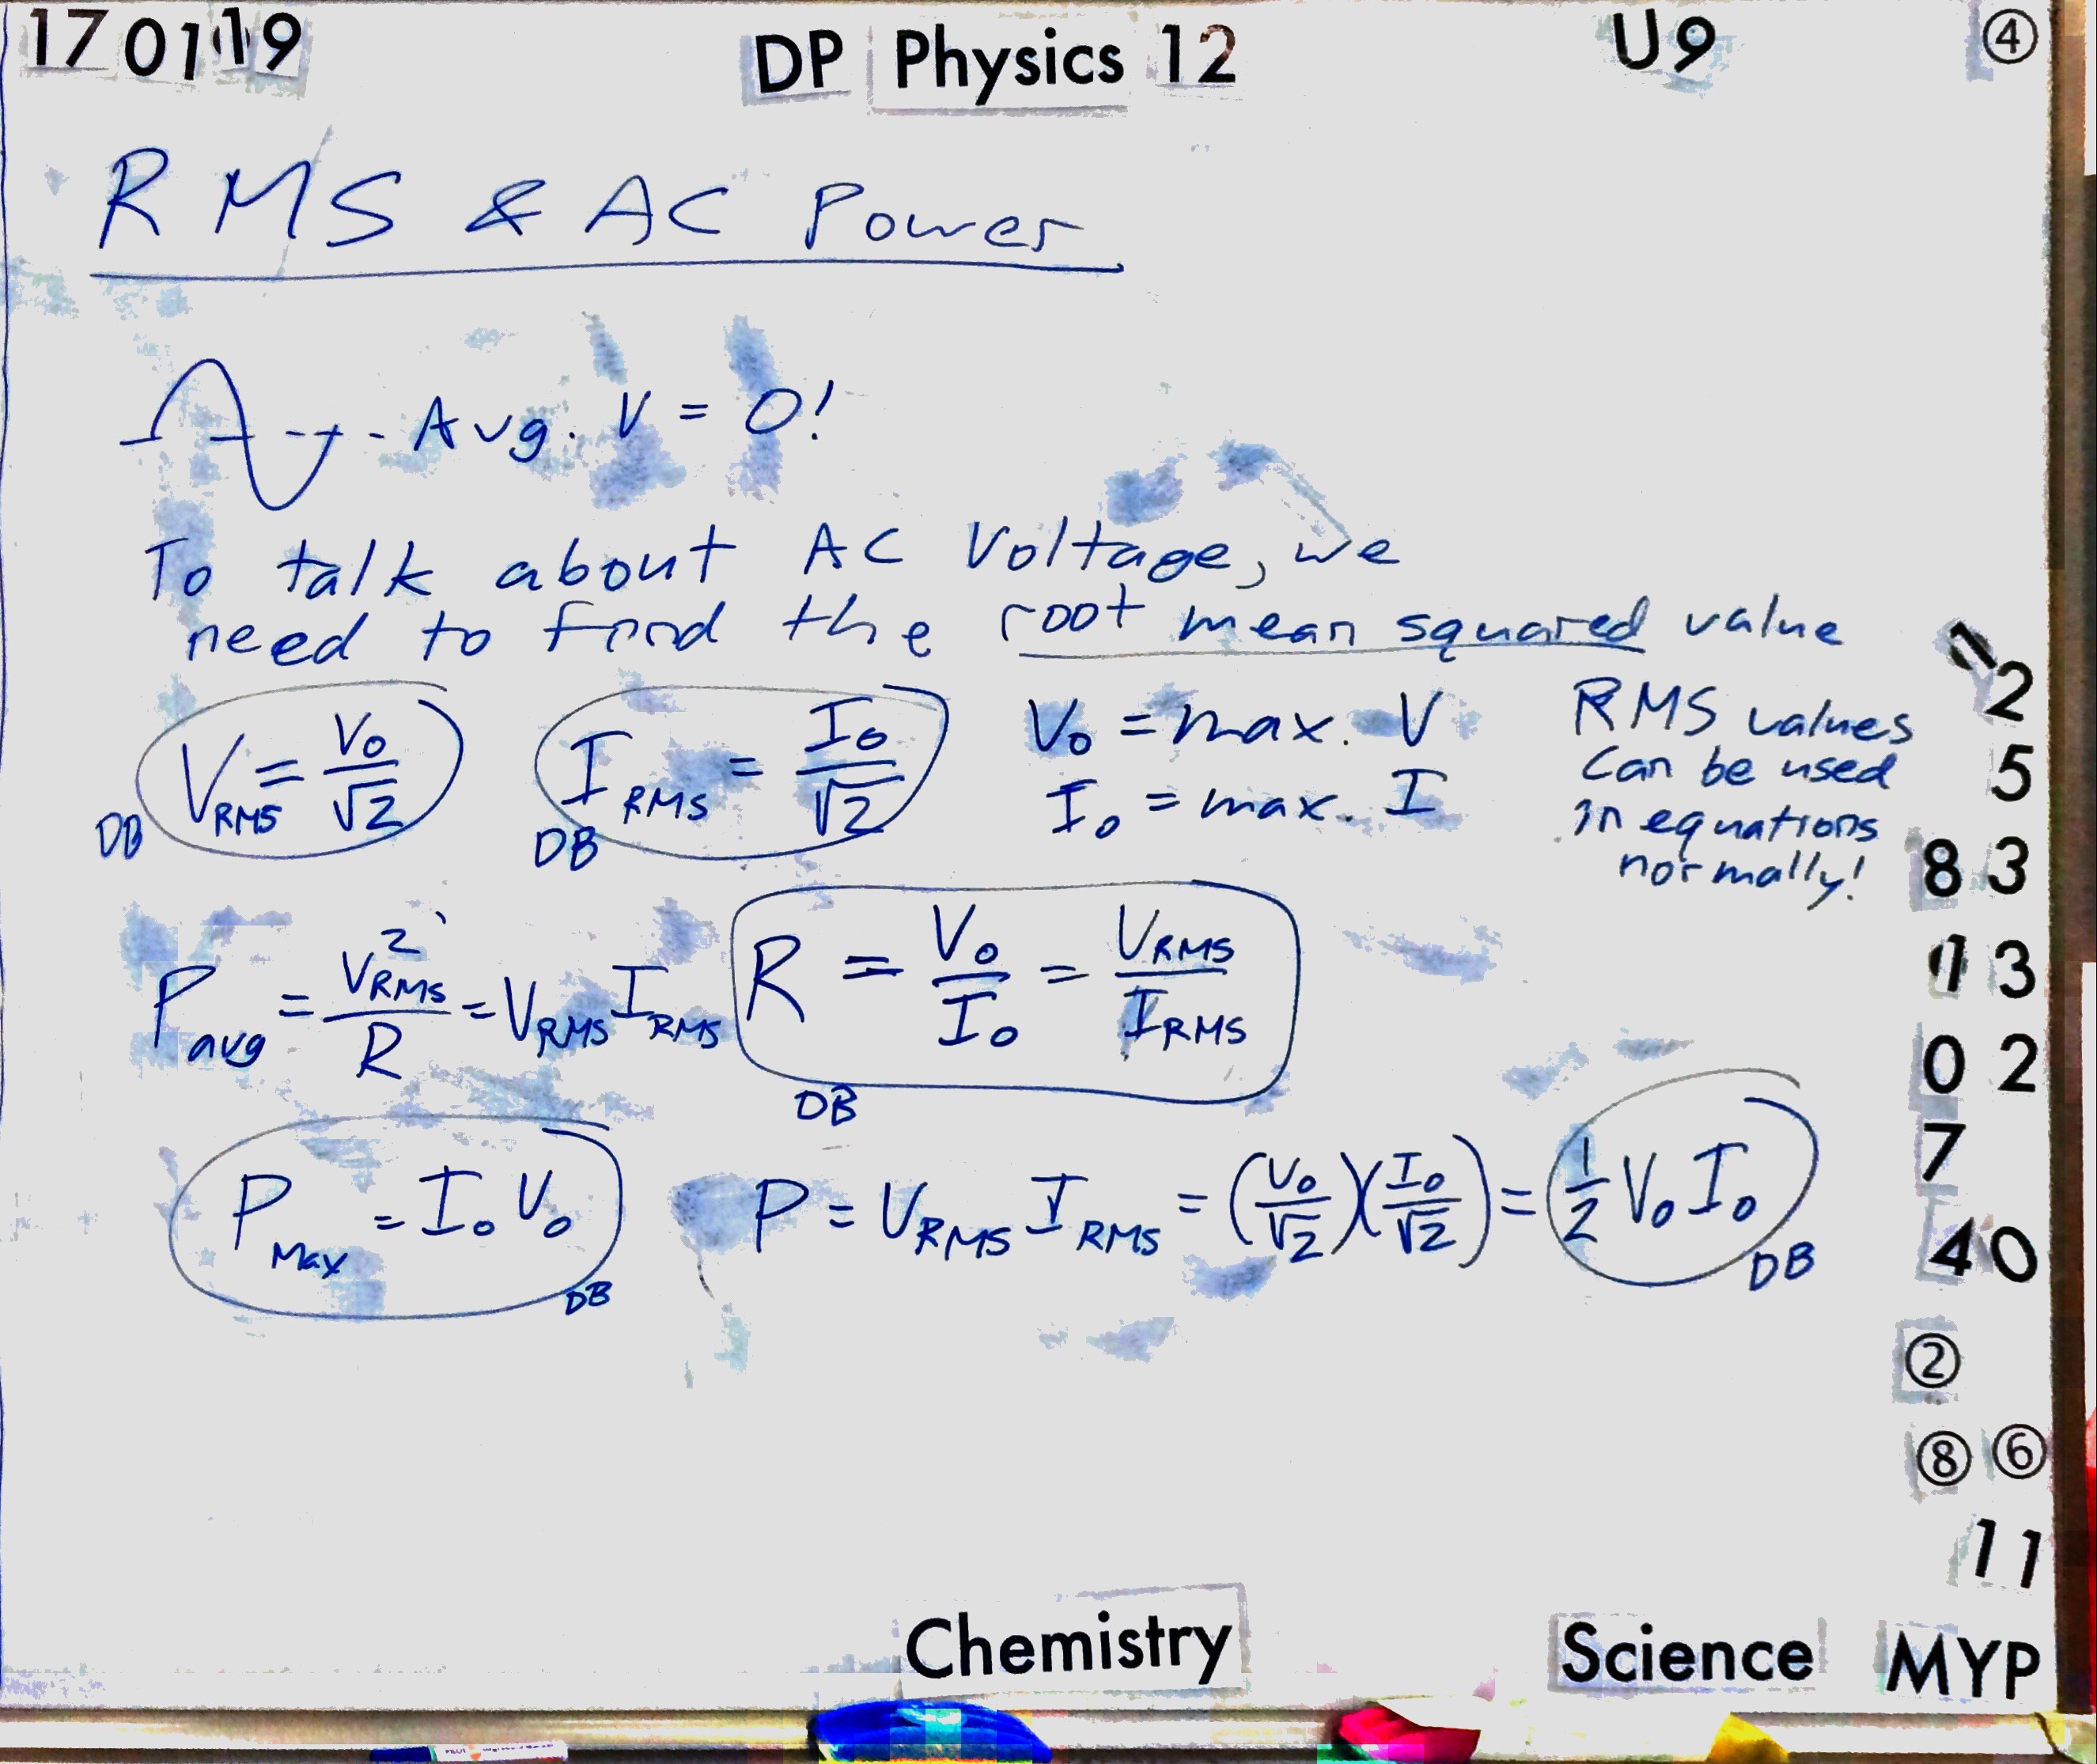 17 01 19 DP Physics 12 U9 ④
RMS & AC Power
Avg. V = 0!
To talk about AC Voltage, we
need to find the root mean squared value
V_RMS = V₀/√2 I_RMS = I₀/√2
DB DB
V₀ = max. V
I₀ = max. I
RMS values
can be used
in equations
normally!
P_avg = V_RMS²/R = V_RMS I_RMS R = V₀/I₀ = V_RMS/I_RMS
DB
P_Max = I₀ V₀ P = V_RMS I_RMS = (V₀/√2)(I₀/√2) = 1/2 V₀ I₀
DB DB
1 2
5
8 3
1 3
0 2
7
4 0
②
⑧ ⑥
1 1
Chemistry Science MYP